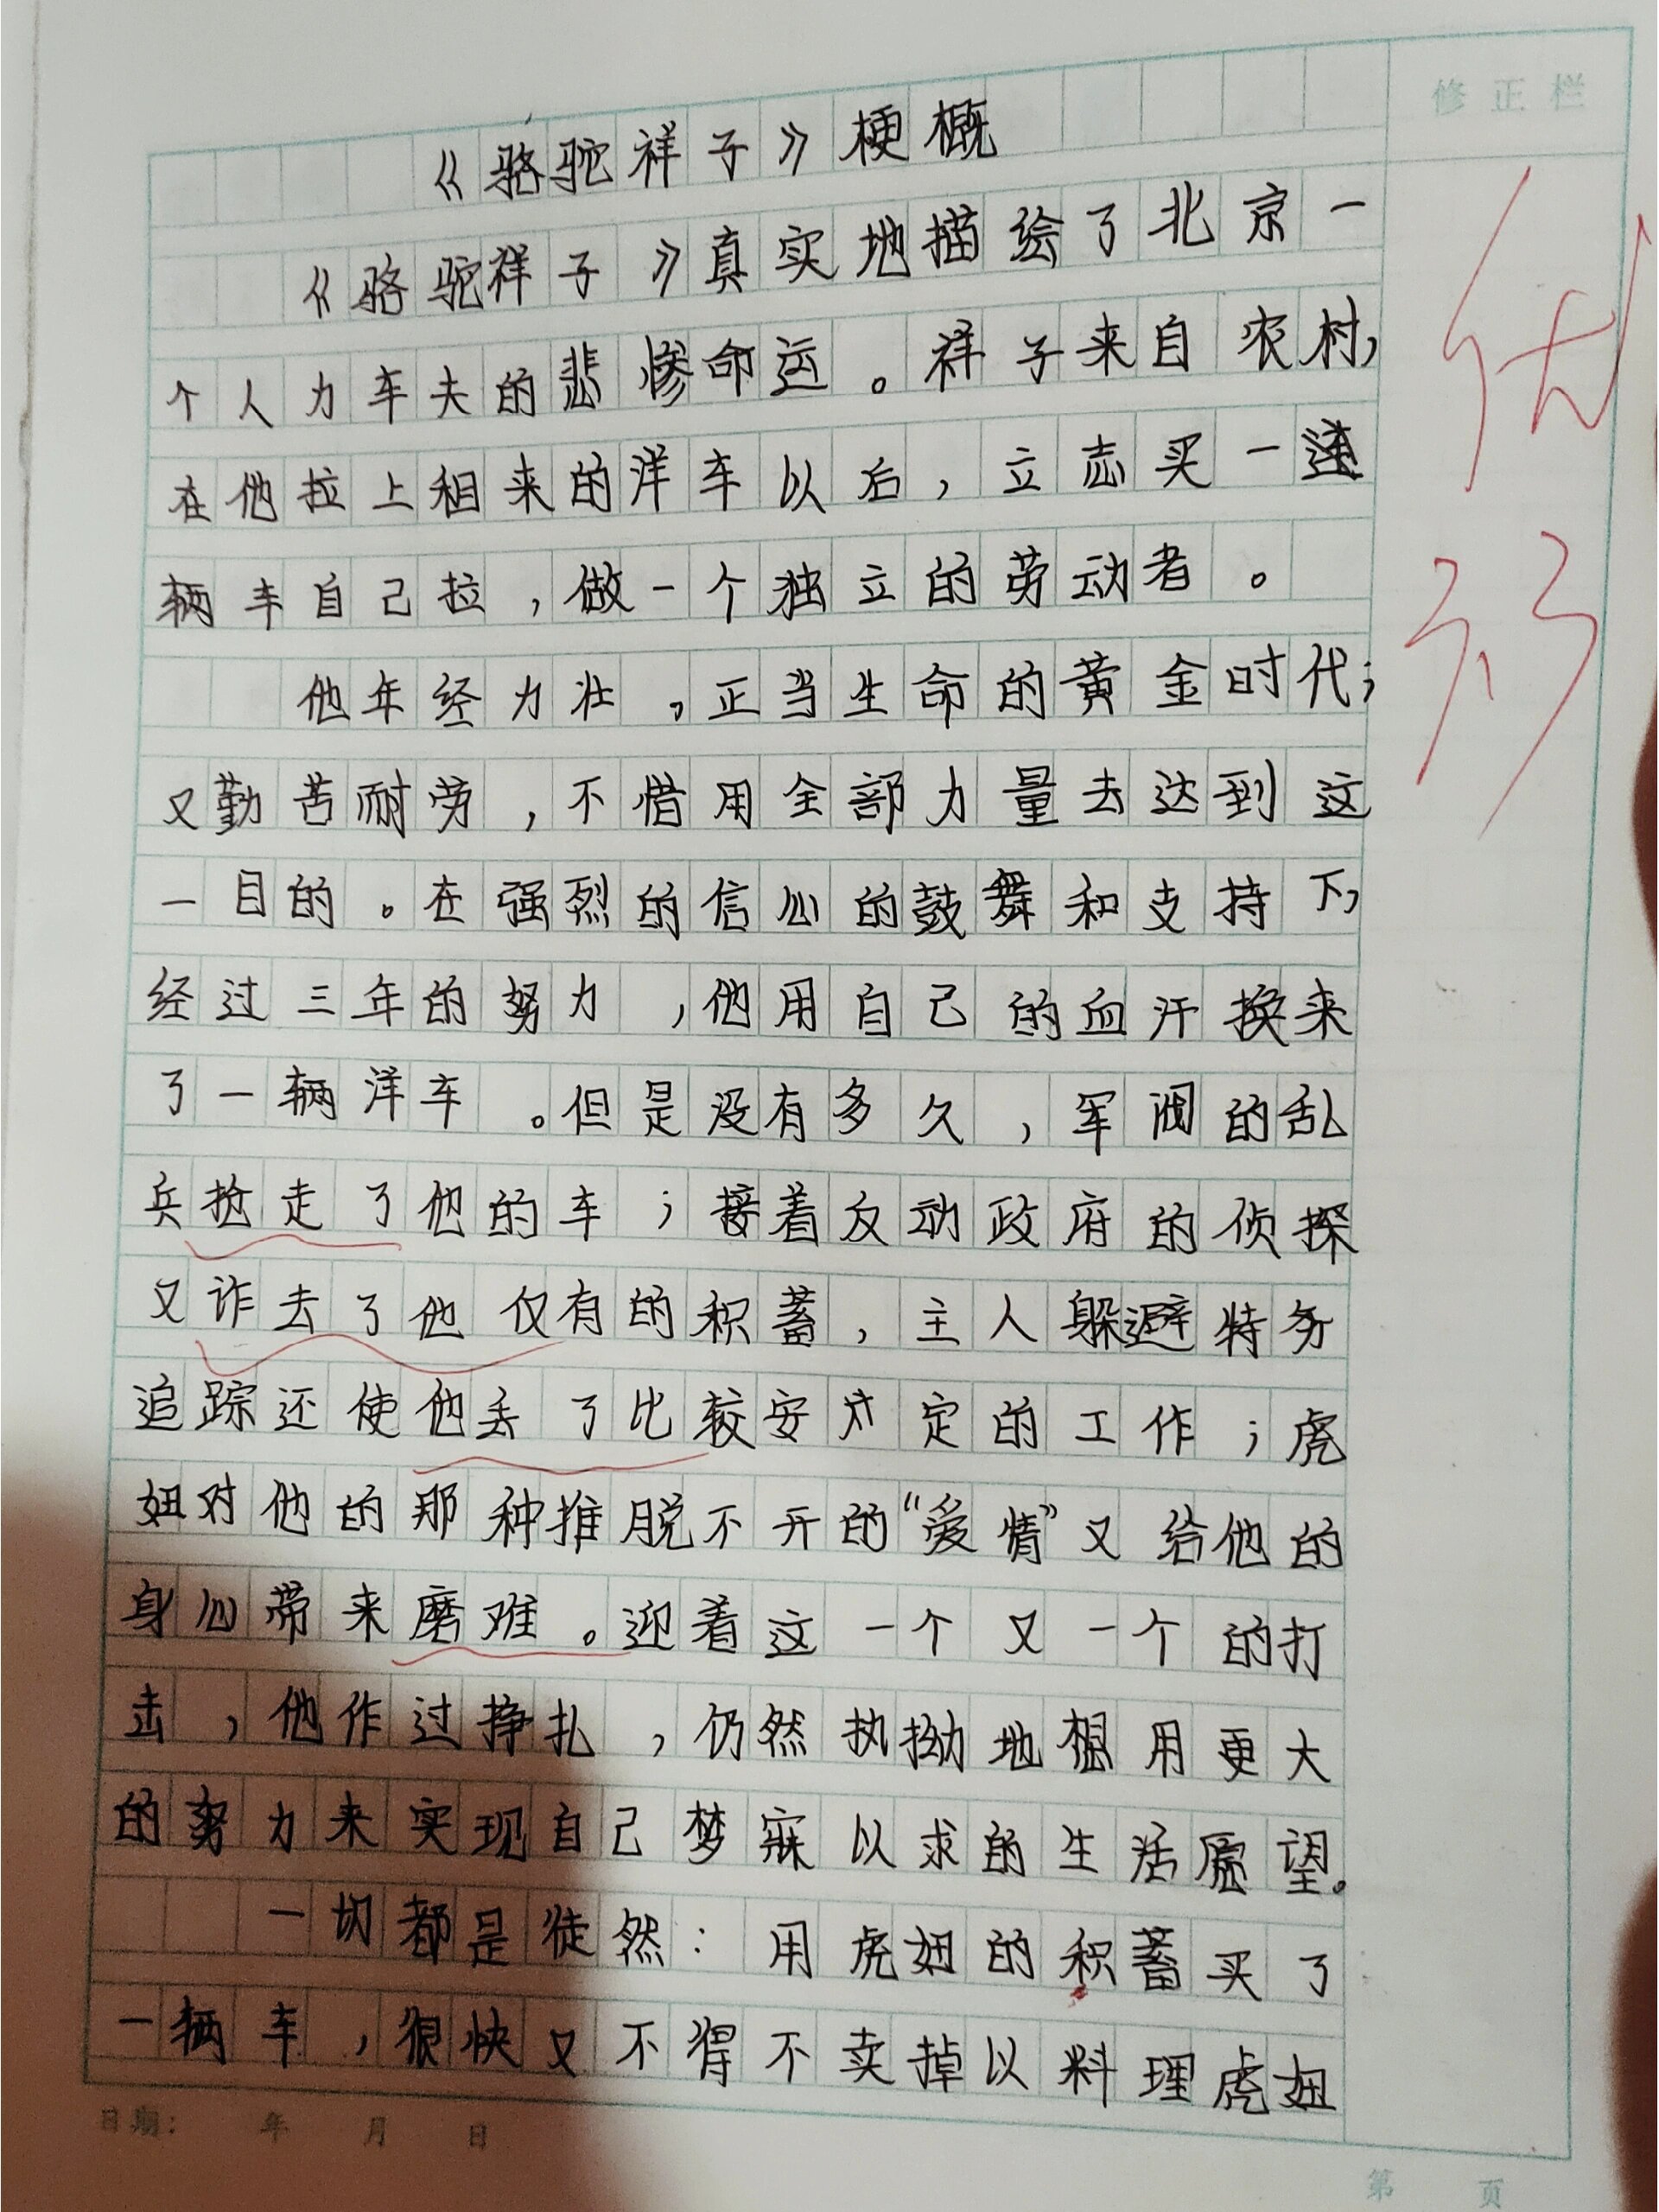 修正栏
《骆驼祥子》梗概
《骆驼祥子》真实地描绘了北京一
个人力车夫的悲惨命运。祥子来自农村,
在他拉上租来的洋车以后,立志买一
辆车自己拉,做一个独立的劳动者。
他年经力壮,正当生命的黄金时代;
又勤苦耐劳,不惜用全部力量去达到这
一目的。在强烈的信心的鼓舞和支持下,
经过三年的努力,他用自己的血汗换来
了一辆洋车。但是没有多久,军阀的乱
兵抢走了他的车;接着反动政府的侦探
又诈去了他仅有的积蓄,主人躲避特务
追踪还使他丢了比较安定的工作;虎
妞对他的那种推脱不开的“爱情”又给他的
身心带来磨难。迎着这一个又一个的打
击,他作过挣扎,仍然执拗地想用更大
的努力来实现自己梦寐以求的生活愿望。
一切都是徒然:用虎妞的积蓄买了
一辆车,很快又不得不卖掉以料理虎妞
日期: 年 月 日
第 页
优